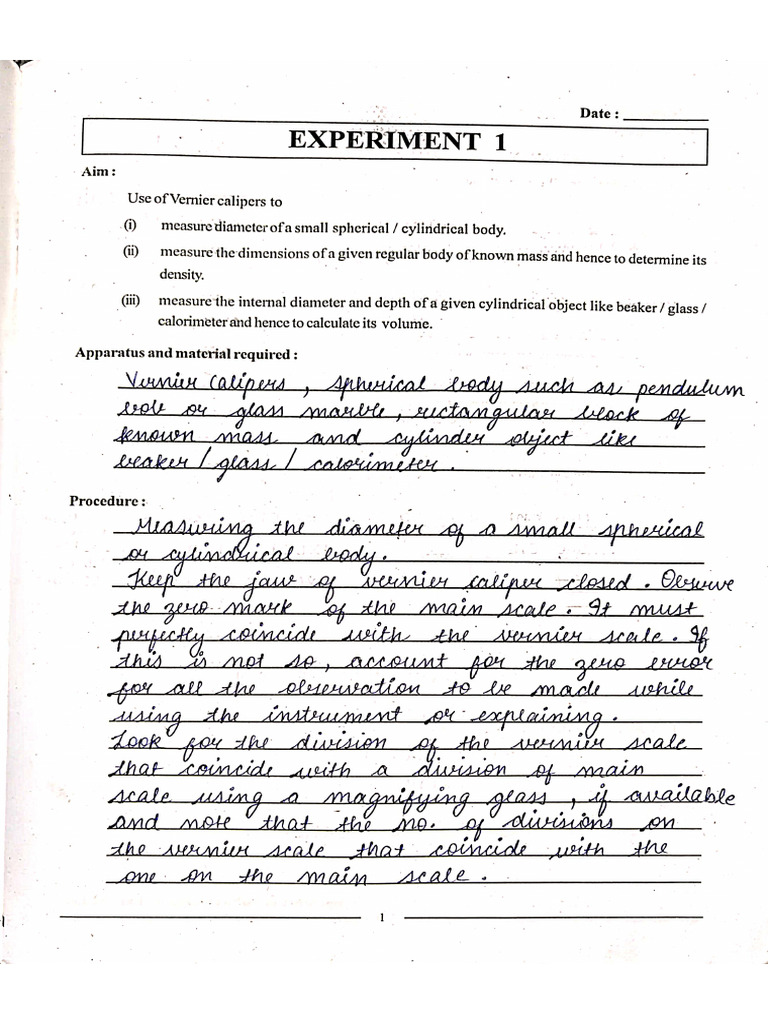 Date :
EXPERIMENT 1
Aim :
Use of Vernier calipers to
(i) measure diameter of a small spherical / cylindrical body.
(ii) measure the dimensions of a given regular body of known mass and hence to determine its
density.
(iii) measure the internal diameter and depth of a given cylindrical object like beaker / glass /
calorimeter and hence to calculate its volume.
Apparatus and material required :
Vernier Calipers , spherical body such as pendulum
bob or glass marble, rectangular block of
known mass and cylinder object like
beaker / glass / calorimeter .
Procedure :
Measuring the diameter of a small spherical
or cylindrical body.
Keep the jaw of vernier caliper closed . Observe
the zero mark of the main scale . It must
perfectly coincide with the vernier scale . If
this is not so , account for the zero error
for all the observation to be made while
using the instrument or explaining .
Look for the division of the vernier scale
that coincide with a division of main
scale using a magnifying glass , if available
and note that the no. of divisions on
the vernier scale that coincide with the
one on the main scale .
1